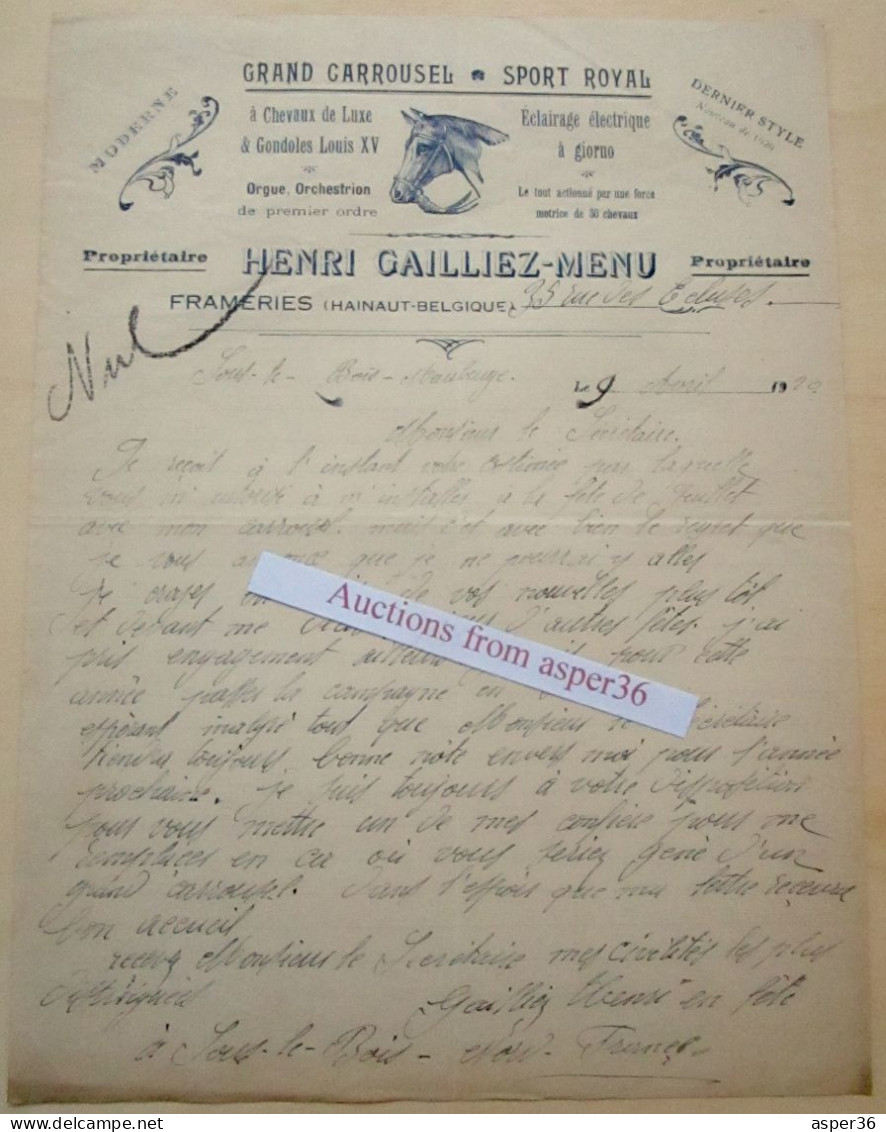 GRAND CARROUSEL SPORT ROYAL
MODERNE
à Chevaux de Luxe
& Gondoles Louis XV
Orgue, Orchestrion
de premier ordre
Éclairage électrique
à giorno
Le tout actionné par une force
motrice de 30 chevaux
DERNIER STYLE
Propriétaire HENRI GAILLIEZ-MENU Propriétaire
FRAMERIES (HAINAUT-BELGIQUE), 35 rue des Ecluses.
Nul
Sous-le-Bois-Maubeuge. Le 9 Avril 1920
Monsieur le Secrétaire.
Je reçoit à l'instant votre estimée par laquelle
vous m'autorisé à m'installer à la fête de Juillet
avec mon carrousel. mais c'est avec bien le regret que
je vous annonce que je ne pourrai y aller
Je croyer de vos nouvelles plus tôt.
et devant me d'autres fêtes. j'ai
pris engagement ailleurs pour cette
année passer la campagne en
espérant malgré tout que Monsieur le Secrétaire
tiendra toujours bonne note envers moi pour l'année
prochaine. je suis toujours à votre disposition
pour vous mettre un de mes confrère pour me
remplacer en cas où vous seriez gené d'un
grand carrousel. Dans l'espoir que ma lettre recevra
bon accueil
recevez Monsieur le Secrétaire mes civilités les plus
Gailliez Henri en fête
à Sous-le-Bois-Nord-France.
Auctions from asper36
www.delcampe.net
asper36